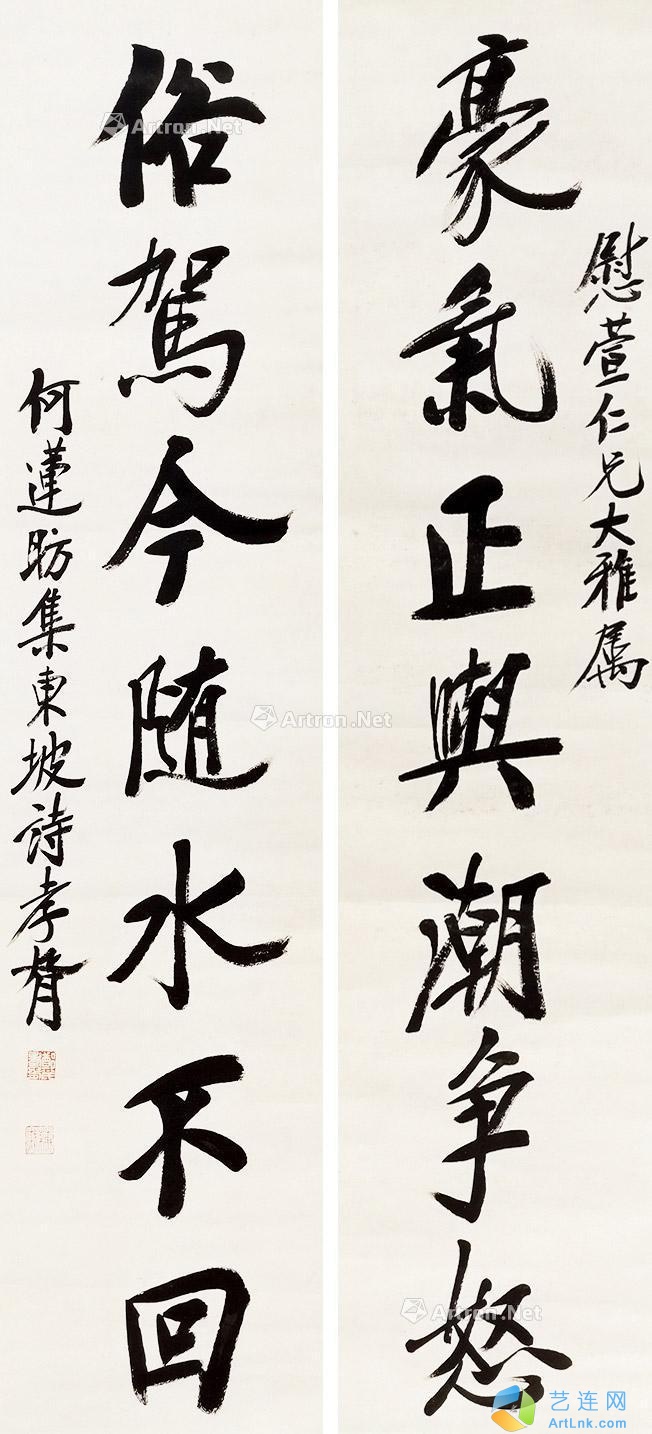 慰萱仁兄大雅属
豪氣正與潮争怒
俗駕今随水不回
何蓮舫集東坡詩孝胥
Artron.Net
Artron.Net
Artron.Net
Artron.Net
艺连网
ArtLnk.com